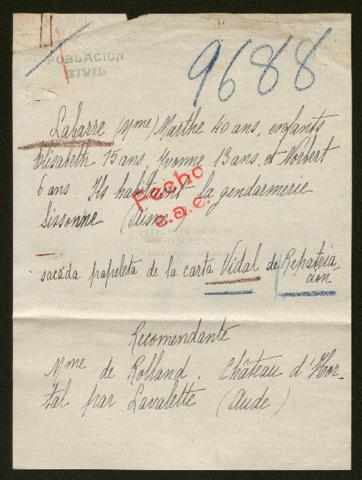 POBLACION
CIVIL
9688
Labarre (Mme) Marthe 40 ans, enfants
Elisabeth 15 ans, Yvonne 13 ans, et Norbert
6 ans. Ils habitaient la gendarmerie
Sissonne (Aisne)
Fecho
e.a.e.
PATRIMONIO
NACIONAL
sacada papeleta de la carta Vidal de Repatria-
ción
Recomendante
Mme de Rolland. Château d'Hor-
tal par Lavalette (Aude)